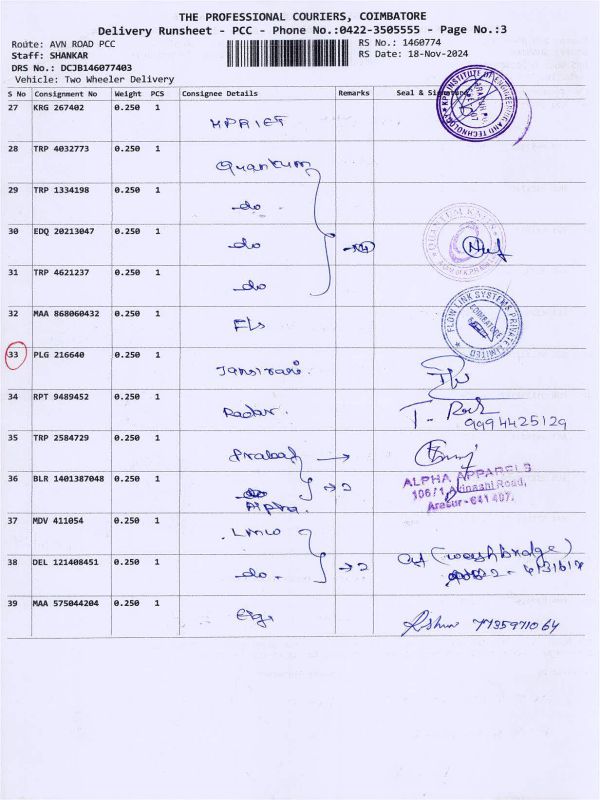 THE PROFESSIONAL COURIERS, COIMBATORE
Delivery Runsheet - PCC - Phone No.:0422-3505555 - Page No.:3
Route: AVN ROAD PCC
Staff: SHANKAR
DRS No.: DCJB146077403
Vehicle: Two Wheeler Delivery
RS No.: 1460774
RS Date: 18-Nov-2024
S No Consignment No Weight PCS Consignee Details Remarks Seal & Signature
27 KRG 267402 0.250 1
28 TRP 4032773 0.250 1 Quantum
29 TRP 1334198 0.250 1 do
30 EDQ 20213047 0.250 1 do
31 TRP 4621237 0.250 1 do
32 MAA 868060432 0.250 1 Fls
FLOW LINK SYSTEMS PRIVATE LIMITED
COIMBATORE
33 PLG 216640 0.250 1 Jansirani.
34 RPT 9489452 0.250 1 Radar.
9994425129
35 TRP 2584729 0.250 1
36 BLR 1401387048 0.250 1 Alpha. → 2
ALPHA APPARELS
106/1 Avinashi Road,
Arasur - 641 407.
37 MDV 411054 0.250 1 LMW
38 DEL 121408451 0.250 1 do → 2 (weighbridge)
39 MAA 575044204 0.250 1
7735971064